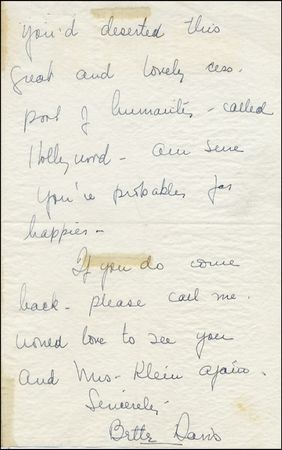 you'd deserted this
great and lovely cess.
pool of humanity - called
Hollywood - am sure
you're probably far
happier -
If you do come
back - please call me.
would love to see you
and Mrs - Klein again.
Sincerely
Bette Davis